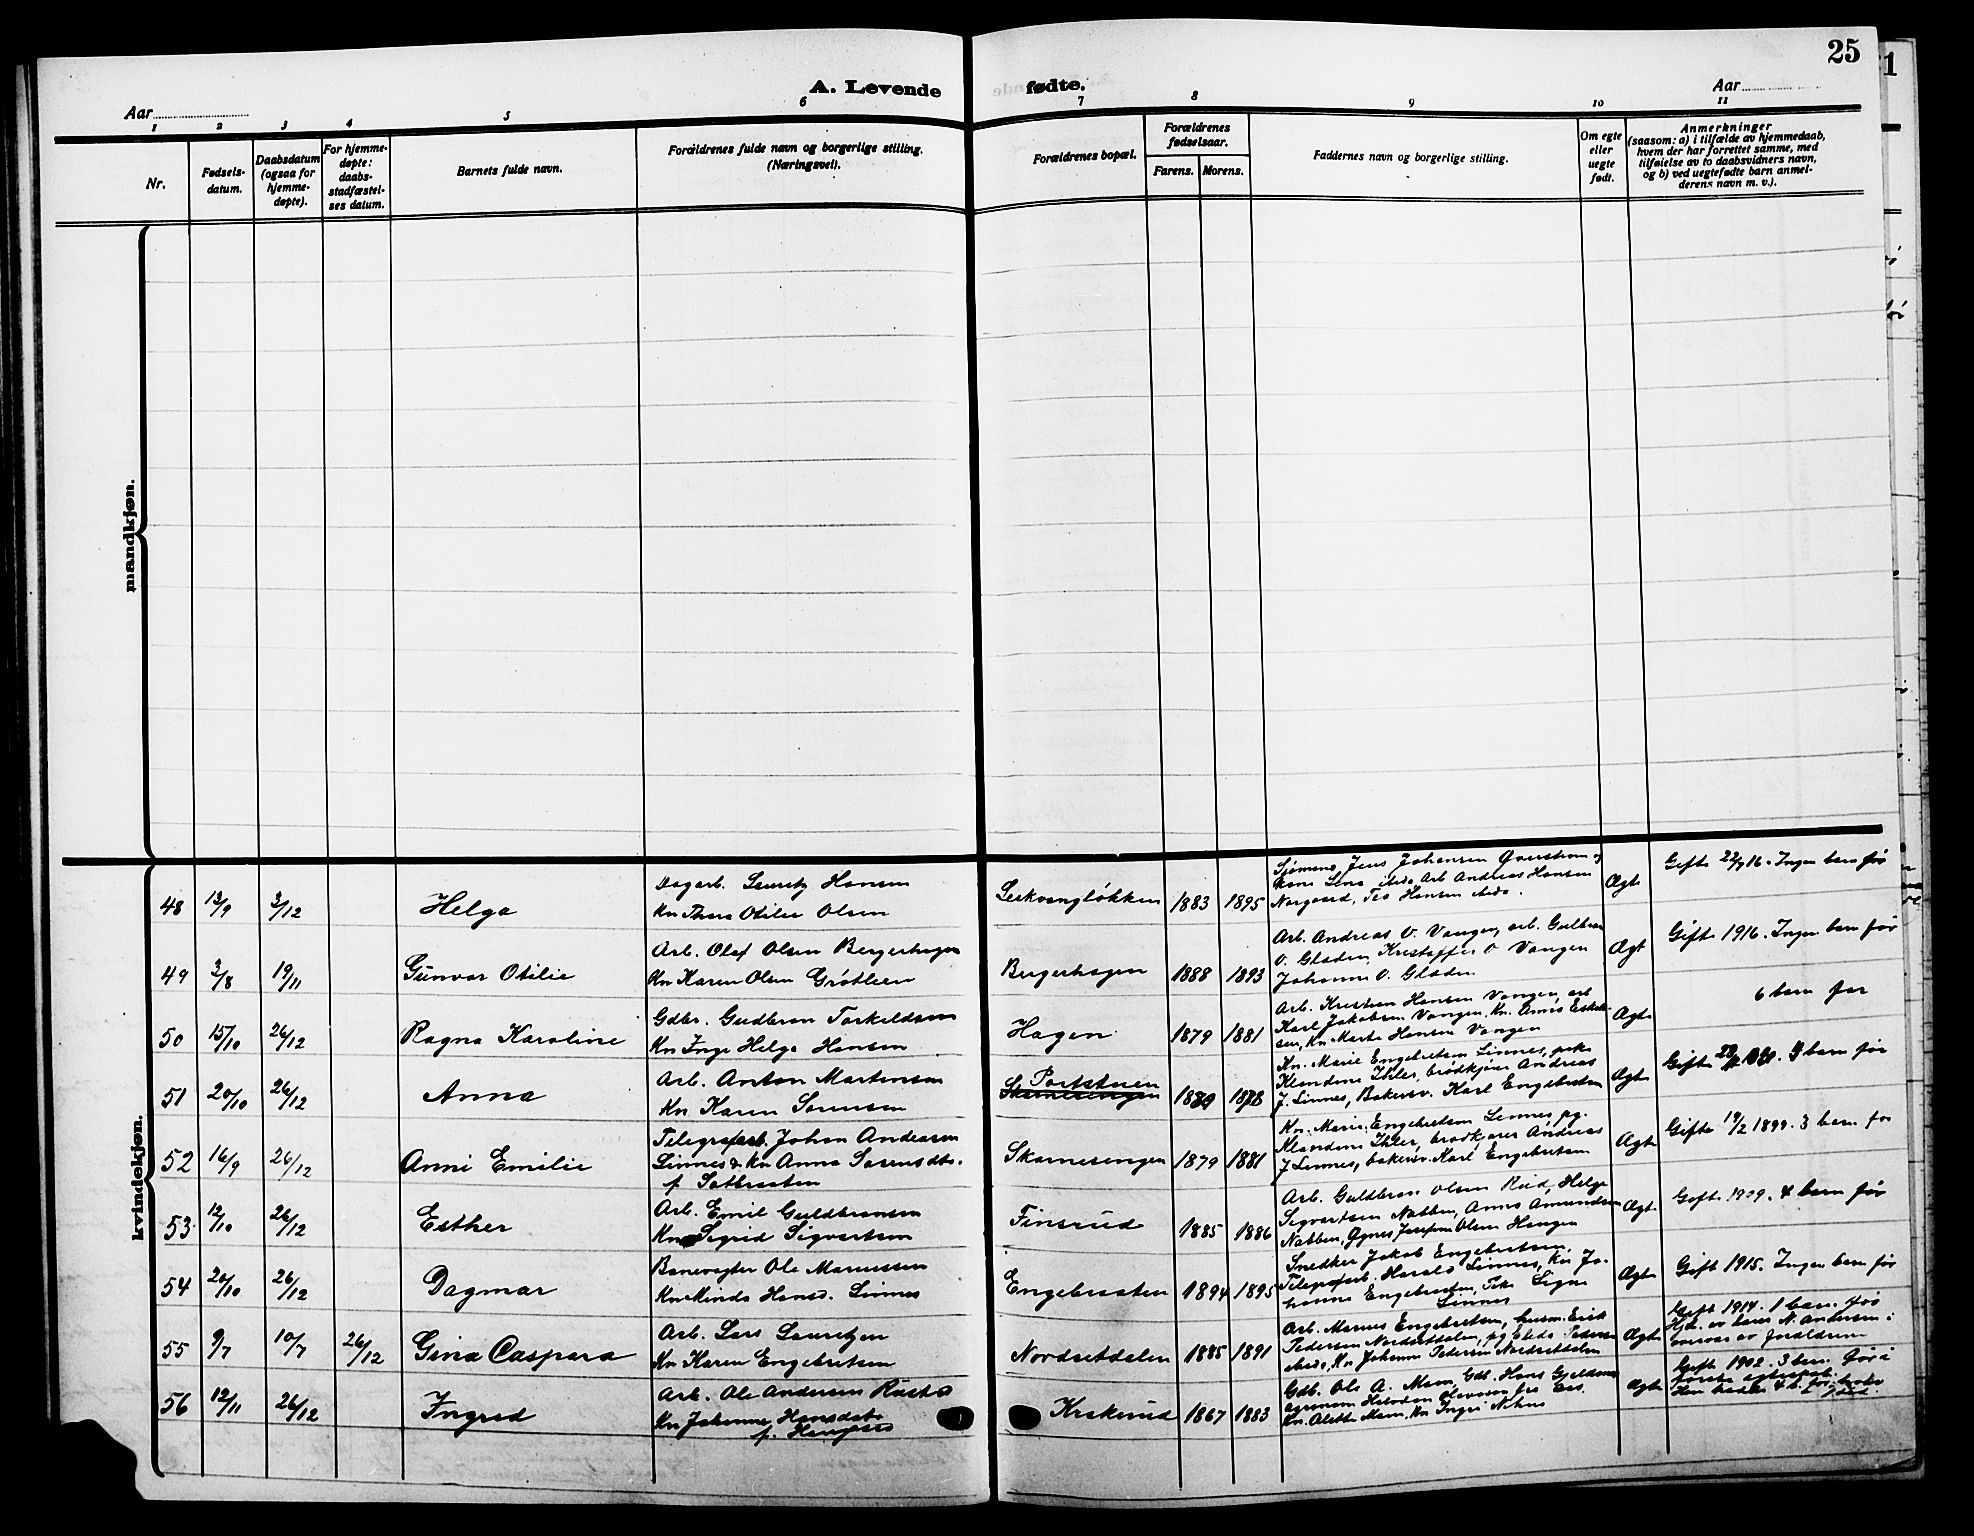 25
A. Levende fødte.
Aar
Aar
1 2 3 4 5 6 7 8 9 10 11
Nr.
Fødsels-
datum.
Daabsdatum
(ogsaa for
hjemme-
døpte).
For hjemme-
døpte:
daabs-
stadfæstel-
ses datum.
Barnets fulde navn.
Forældrenes fulde navn og borgerlige stilling.
(Næringsvei).
Forældrenes bopæl.
Forældrenes
fødselsaar.
Farens. Morens.
Faddernes navn og borgerlige stilling.
Om egte
eller
uegte
født.
Anmerkninger
(saasom: a) i tilfælde av hjemmedaab,
hvem der har forrettet samme, med
tilføielse av to daabsvidners navn,
og b) ved uegtefødte barn anmel-
derens navn m. v.).
mandkjøn.
kvindekjøn.
48 13/9 3/12 Helga
Dagarb. Lauritz Hansen
Kn Thora Otilie Olsen
1883 1895
Sjømand Jens Johansen
kone Lena ibid. Arb Andreas Hansen
Norgaard, Hansen ibid.
Ægte
Gifte 22/7 16. Ingen barn før
49 3/8 19/11 Gunvor Otilie
Arb. Olaf Olsen Bergerhagen
Kn Karen Olsen Grøtlien
Bergerhagen 1888 1893
Arb. Andreas O. Vangen, arb. Gulbran
O. Gladen, Kristoffer O Vangen
Johanne O. Gladen
Ægt
Gifte 1916. Ingen barn før
50 15/10 26/12 Ragna Karoline
Gdbr. Gudbran Torkildsen
Kn Inga Helga Hansen
Hagen 1879 1881
Arb. Kristian Hansen Vangen, arb
Karl Jakobsen Vangen, Kn. Anna
Kn Marte Hansen Vangen
Ægte
6 barn før
51 20/10 26/12 Anna
Arb. Anton Martinsen
Kn Karen Sørensen
Portstuen
Skarnesengen
1878
Kn. Marie Engebretsen Linnes, pike
Klendens Ihler, brødkjører Andreas
J. Linnes, Bakersv. Karl Engebretsen
Ægte
4 barn før
52 16/9 26/12 Anni Emilie
Telegrafarb. Johan Andersen
Linnes & Kn Anna Sørensdtr.
f. Sætbraaten
Skarnesengen 1879 1881
Kn. Marie Engebretsen Linnes, pg.
Klendens Ihler, brødkjører Andreas
J Linnes, bakersv. Karl Engebretsen
Ægte
Gifte 19/2 1899. 3 barn før
53. 12/10 26/12 Esther
Arb. Emil Guldbrandsen
Kn Sigrid Sigvartsen
Finsrud 1885 1886
Arb. Guldbran Olsen Rud, Helge
Sigvartsen Nabben, Anna Amundsen
Nabben, Agnes Josefine Olsen Haugen
Ægte
Gifte 1909. 4 barn før
54 20/10 26/12 Dagmar
Banevogter Ole Marinussen
Kn Minda Hansd. Linnes
Engebraaten 1894 1895
Snedker Jakob Engebretsen,
Telegrafarb. Harald Linnes, Kn Jo-
hanne Engebraaten, Pike Signe
Linnes
Ægte
Gift 1915. Ingen barn før
55 9/7 10/7 26/12 Gina Caspara
Arb. Lars Lauritzen
Kn Karen Engebretsen
Nordsetdalen 1885 1891
Arb. Marius Engebretsen, husm. Erik
Pedersen Nordsetdalen, pg. Pedersen
ibid., Kn. Johanne Pedersen Nordsetdalen
Ægte
Gift 1914. 1 barn før
Hjd. av Lars N. Andersen i
nærvær av forældrene
56 12/11 26/12 Ingrid
Arb. Ole Andersen Rustad
Kn Johanne Hansdatr
f.
Krakerud 1867 1883
Gdb. Ole A. Mam, Gdb. Hans Gjeldnes
agronom
Kn. Alette Mam, Kn Ingri
Ægte
Gift 1902. 3 barn før i
første egteskab.